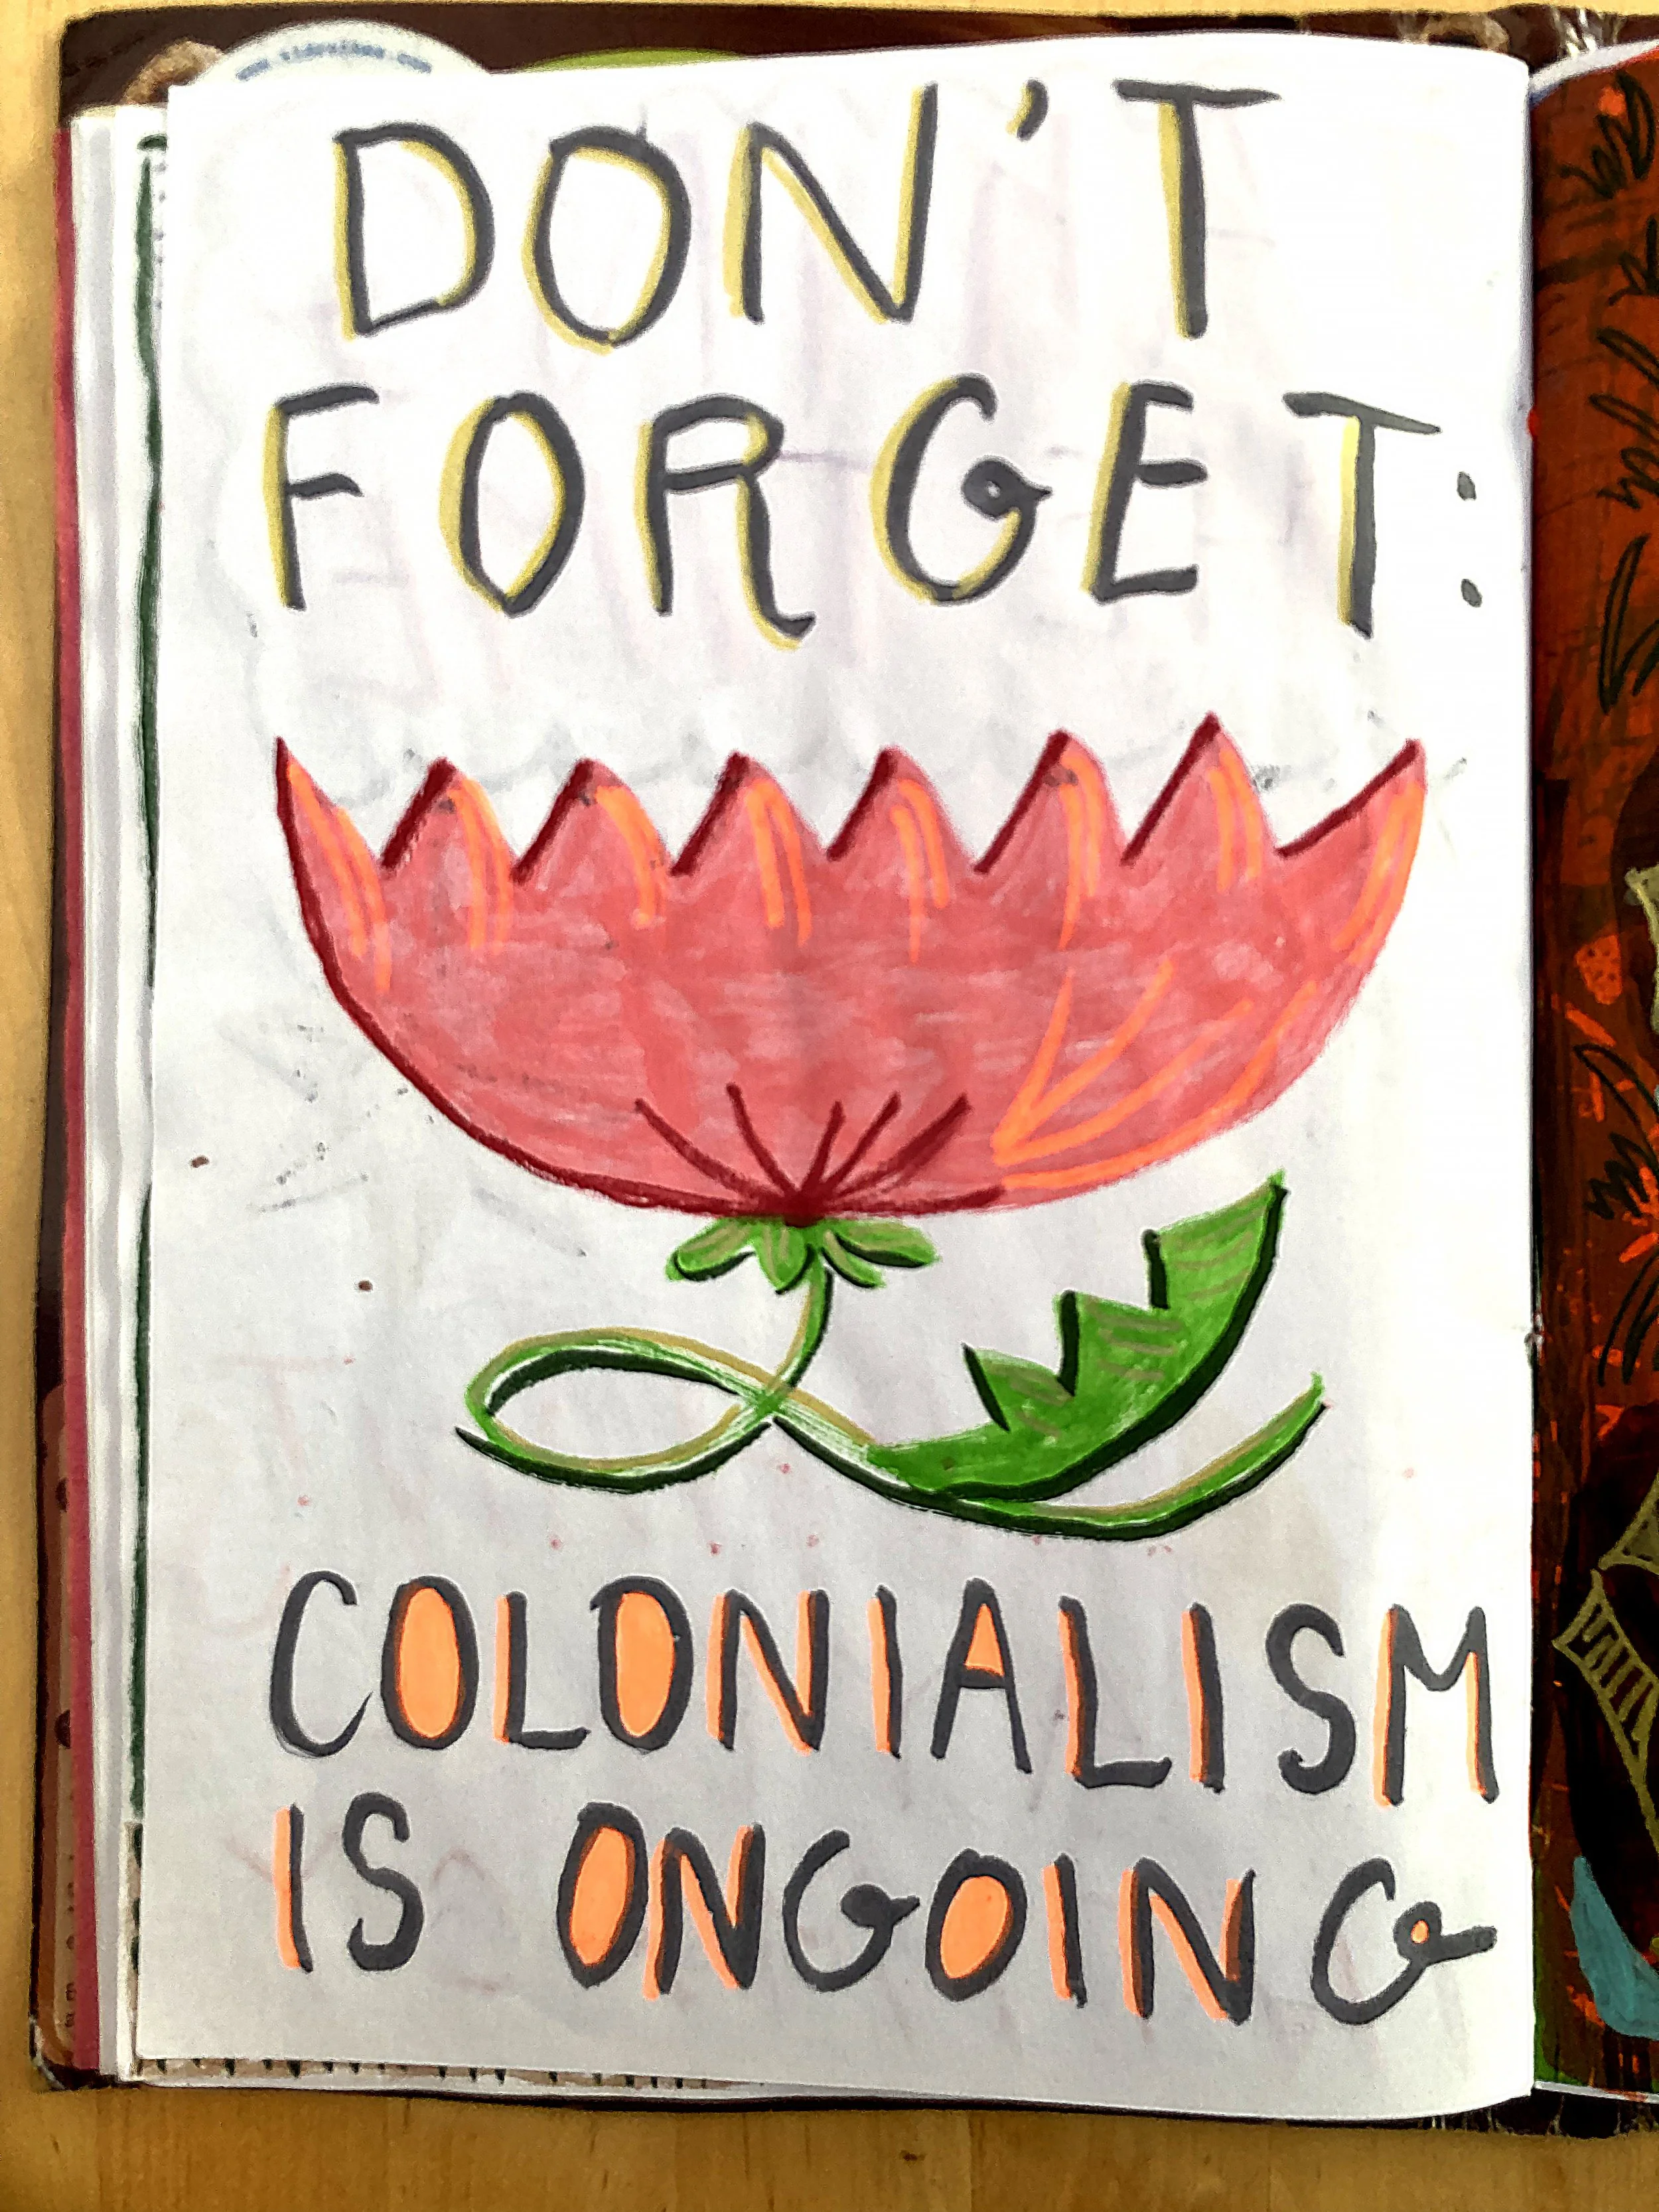 DON'T
FORGET:
COLONIALISM
IS ONGOING